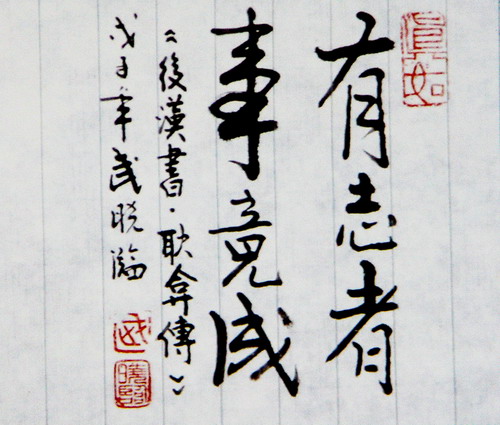 有志者
事竟成
《後漢書·耿弇傳》
戊子年武曉臨